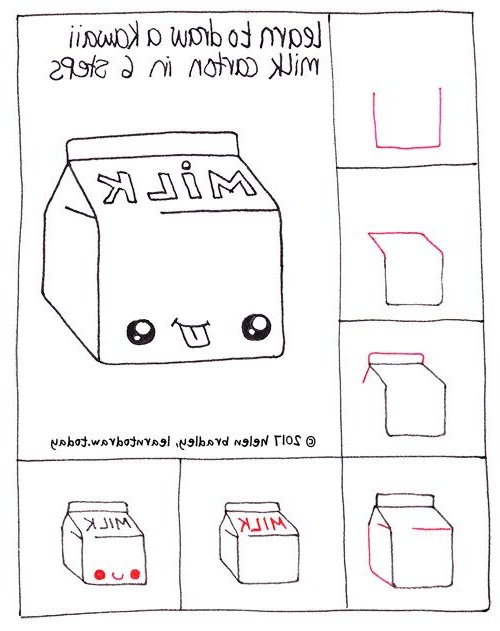 learn to draw a kawaii
milk carton in 6 steps
MiLK
© 2017 helen bradley, learntodraw.today
MILK
MILK